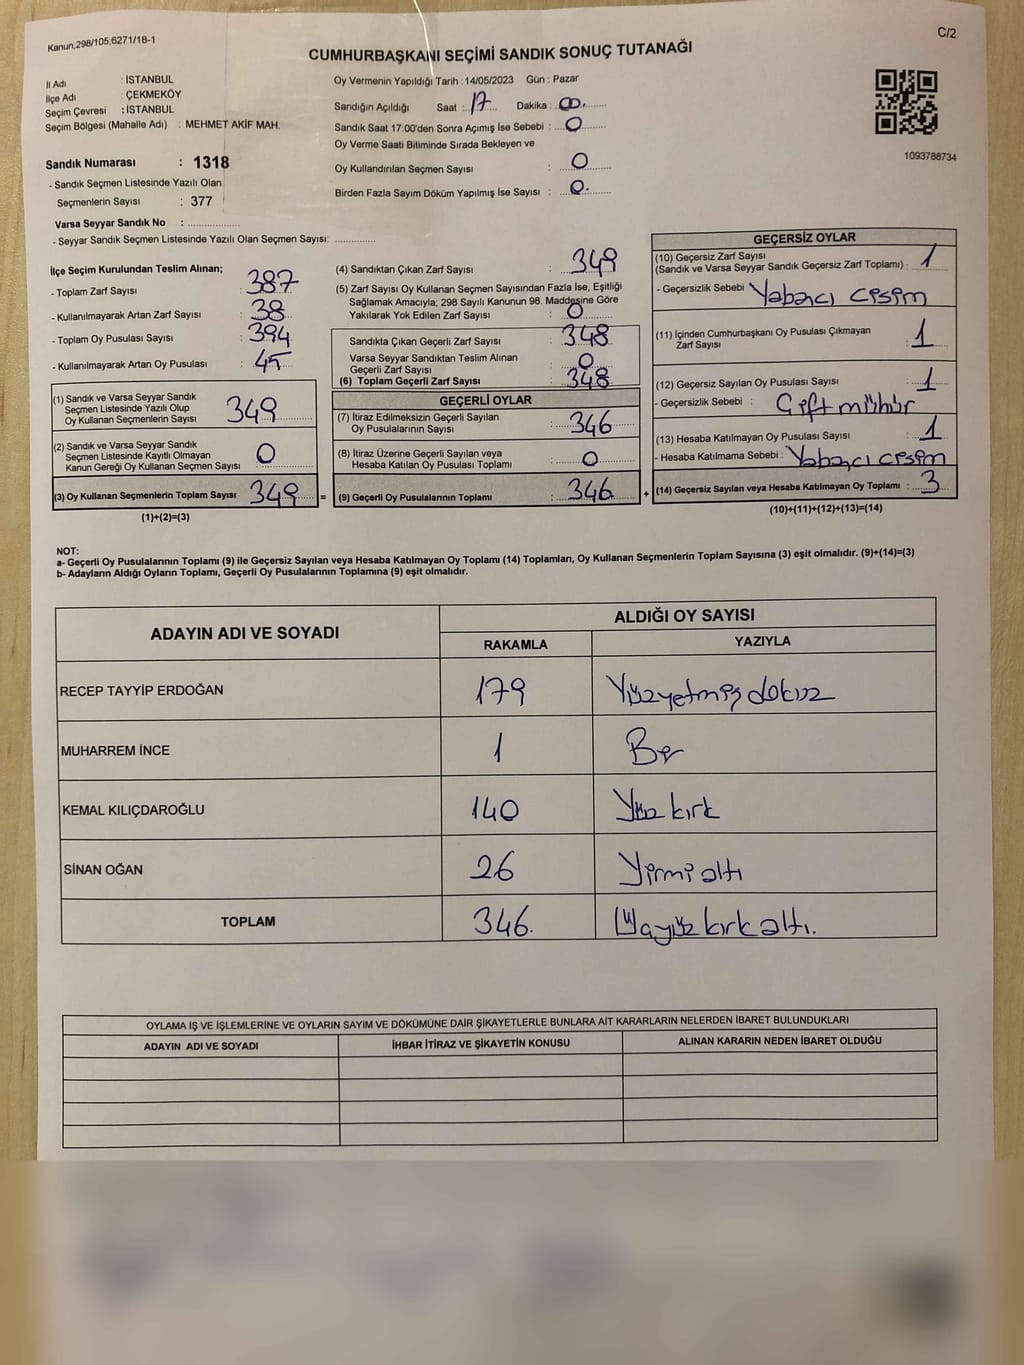 Kanun;298/105,6271/18-1
C/2
CUMHURBAŞKANI SEÇİMİ SANDIK SONUÇ TUTANAĞI
İl Adı : İSTANBUL
İlçe Adı : ÇEKMEKÖY
Seçim Çevresi : İSTANBUL
Seçim Bölgesi (Mahalle Adı) : MEHMET AKİF MAH.
Sandık Numarası : 1318
- Sandık Seçmen Listesinde Yazılı Olan
Seçmenlerin Sayısı : 377
Varsa Seyyar Sandık No : ..................
- Seyyar Sandık Seçmen Listesinde Yazılı Olan Seçmen Sayısı: ..............
Oy Vermenin Yapıldığı Tarih : 14/05/2023 Gün : Pazar
Sandığın Açıldığı Saat : 17 Dakika : 00
Sandık Saat 17:00'den Sonra Açımış İse Sebebi : 0
Oy Verme Saati Bitiminde Sırada Bekleyen ve
Oy Kullandırılan Seçmen Sayısı : 0
Birden Fazla Sayım Döküm Yapılmış İse Sayısı : 0.
1093788734
İlçe Seçim Kurulundan Teslim Alınan;
- Toplam Zarf Sayısı : 387
- Kullanılmayarak Artan Zarf Sayısı : 38
- Toplam Oy Pusulası Sayısı : 394
- Kullanılmayarak Artan Oy Pusulası : 45
(1) Sandık ve Varsa Seyyar Sandık
Seçmen Listesinde Yazılı Olup
Oy Kullanan Seçmenlerin Sayısı : 349
(2) Sandık ve Varsa Seyyar Sandık
Seçmen Listesinde Kayıtlı Olmayan
Kanun Gereği Oy Kullanan Seçmen Sayısı : 0
(3) Oy Kullanan Seçmenlerin Toplam Sayısı : 349 =
(1)+(2)=(3)
(4) Sandıktan Çıkan Zarf Sayısı : 349
(5) Zarf Sayısı Oy Kullanan Seçmen Sayısından Fazla İse, Eşitliği
Sağlamak Amacıyla; 298 Sayılı Kanunun 98. Maddesine Göre
Yakılarak Yok Edilen Zarf Sayısı : 0
Sandıkta Çıkan Geçerli Zarf Sayısı : 348
Varsa Seyyar Sandıktan Teslim Alınan
Geçerli Zarf Sayısı : 0
(6) Toplam Geçerli Zarf Sayısı : 348
GEÇERLİ OYLAR
(7) İtiraz Edilmeksizin Geçerli Sayılan
Oy Pusulalarının Sayısı : 346
(8) İtiraz Üzerine Geçerli Sayılan veya
Hesaba Katılan Oy Pusulası Toplamı : 0
(9) Geçerli Oy Pusulalarının Toplamı : 346 +
GEÇERSİZ OYLAR
(10) Geçersiz Zarf Sayısı
(Sandık ve Varsa Seyyar Sandık Geçersiz Zarf Toplamı) : 1
- Geçersizlik Sebebi : Yabancı cisim
(11) İçinden Cumhurbaşkanı Oy Pusulası Çıkmayan
Zarf Sayısı : 1
(12) Geçersiz Sayılan Oy Pusulası Sayısı : 1
- Geçersizlik Sebebi : Çift mühür
(13) Hesaba Katılmayan Oy Pusulası Sayısı : 1
- Hesaba Katılmama Sebebi : Yabancı cisim
(14) Geçersiz Sayılan veya Hesaba Katılmayan Oy Toplamı : 3
(10)+(11)+(12)+(13)=(14)
NOT:
a- Geçerli Oy Pusulalarının Toplamı (9) ile Geçersiz Sayılan veya Hesaba Katılmayan Oy Toplamı (14) Toplamları, Oy Kullanan Seçmenlerin Toplam Sayısına (3) eşit olmalıdır. (9)+(14)=(3)
b- Adayların Aldığı Oyların Toplamı, Geçerli Oy Pusulalarının Toplamına (9) eşit olmalıdır.
ADAYIN ADI VE SOYADI ALDIĞI OY SAYISI
RAKAMLA YAZIYLA
RECEP TAYYİP ERDOĞAN 179 Yüzyetmiş dokuz
MUHARREM İNCE 1 Bir
KEMAL KILIÇDAROĞLU 140 Yüz kırk
SİNAN OĞAN 26 Yirmi altı
TOPLAM 346. Üçyüz kırk altı.
OYLAMA İŞ VE İŞLEMLERİNE VE OYLARIN SAYIM VE DÖKÜMÜNE DAİR ŞİKAYETLERLE BUNLARA AİT KARARLARIN NELERDEN İBARET BULUNDUKLARI
ADAYIN ADI VE SOYADI İHBAR İTİRAZ VE ŞİKAYETİN KONUSU ALINAN KARARIN NEDEN İBARET OLDUĞU